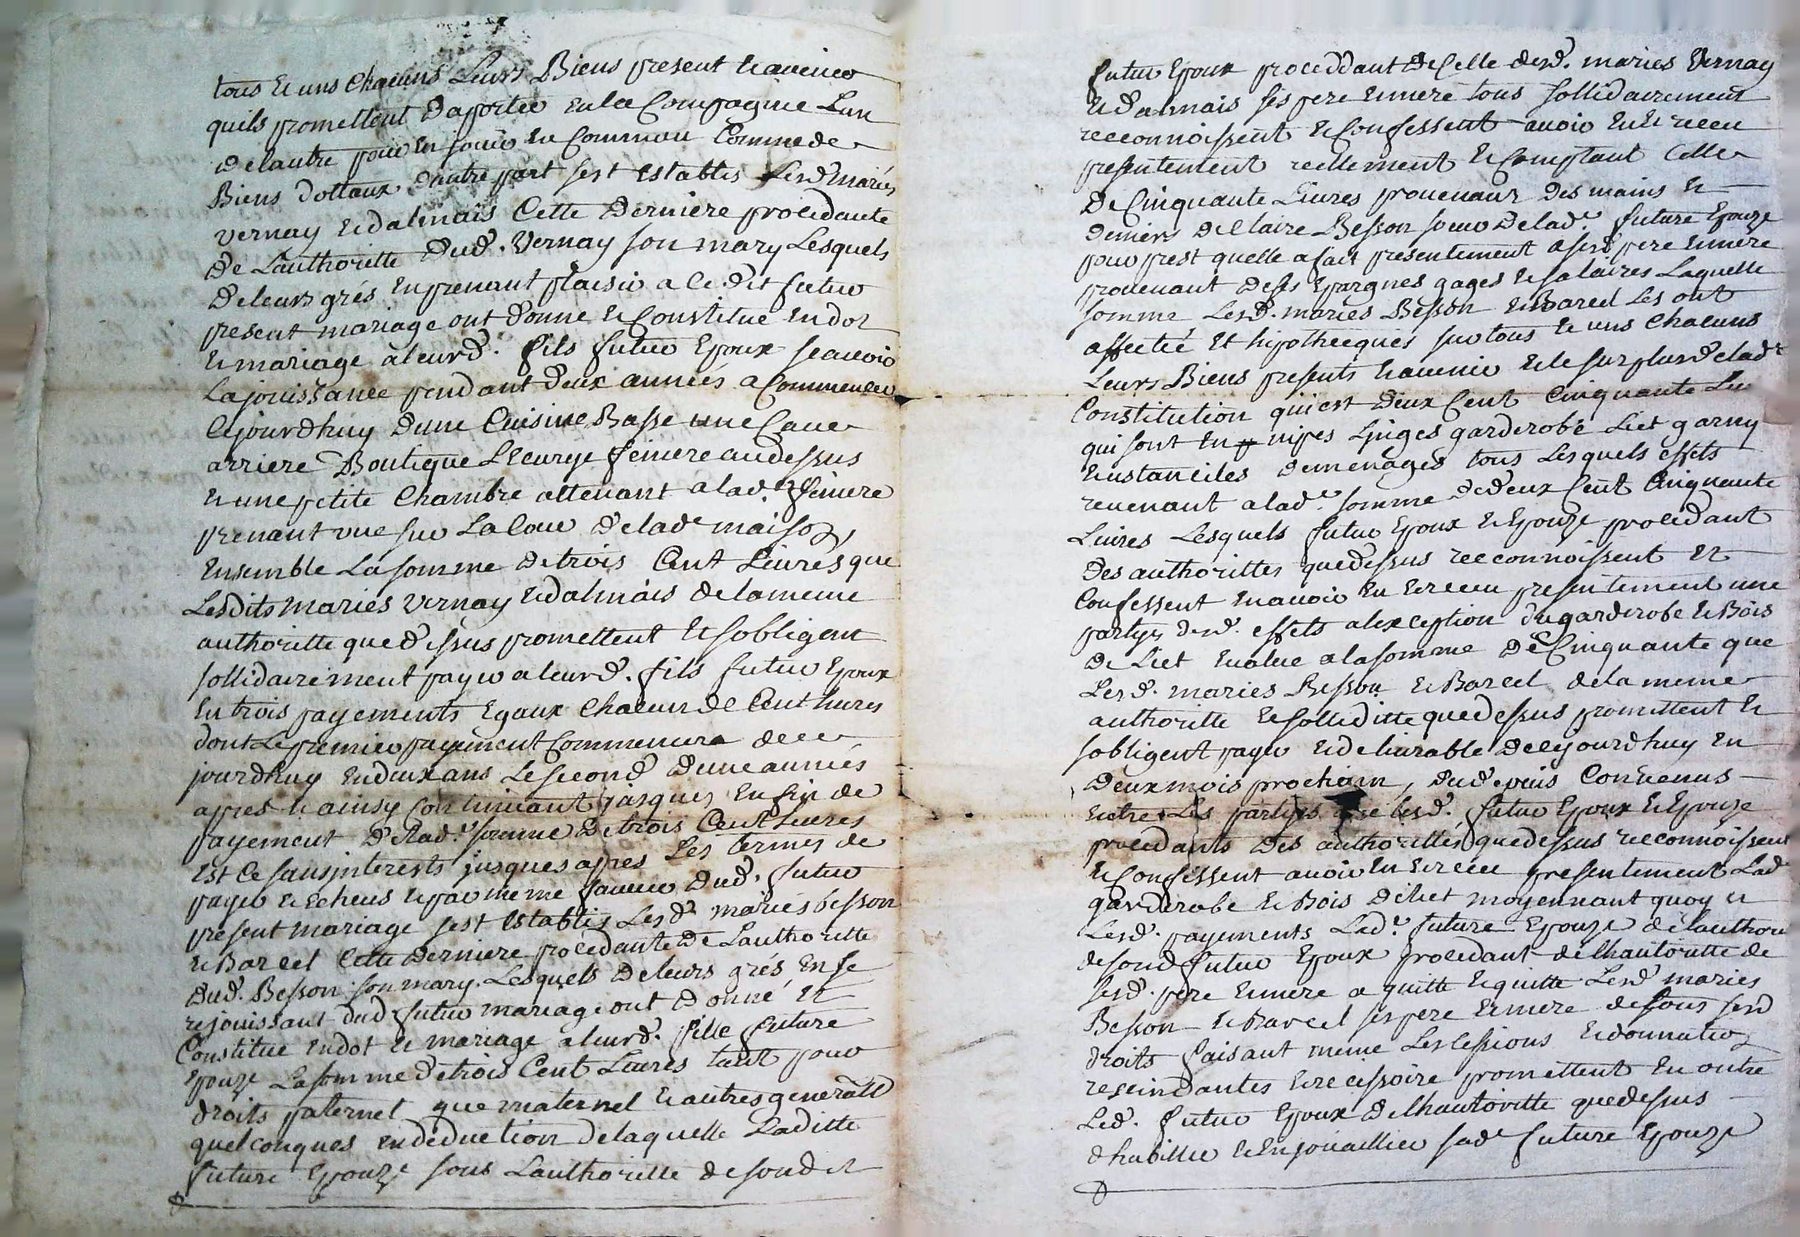 tous et uns chacuns Leurs Biens present et avenir
quils promettent d'aporter en la Compagnie L'un
de lautre pour En jouir En Commun Comme de
Biens dottaux dautre part sest establis Lesd. mariés
vernay et dalmais Cette Derniere procedante
de Lauthoritte Dud. Vernay son mary Lesquels
de leurs grés En prenant plaisir a Ce dit futur
present mariage ont donne et Constitue En dot
et mariage a leurd. fils futur Epoux scavoir
La jouissance pendant deux années a Commencer
Cejourdhuy dune Cuisine Basse une Cave
arriere Boutique L'Ecurye feniere au dessus
et une petite Chambre attenant a lad.e feniere
prenant vue sur La Cour de lad.e maison,
Ensemble La somme de trois Cent Livres que
Lesdits mariés vernay et dalmais de la meme
authoritte que dessus promettent et sobligent
sollidairement payer a leurd. fils futur Epoux
En trois payements Egaux Chacun de Cent livres
dont Le premier payement Commencera de ce
jourdhuy En deux ans Le second d'une année
apres et ainsy Continuant jusques En fin de
payement de lad.e somme de trois Cent Livres
Est Ce sans interests jusques apres Les termes de
payer et Echeus et par meme faveur Dud. futur
present mariage sest establis Lesd. mariés besson
et Barcel Cette Derniere procedante de Lauthoritte
Dud. Besson son mary. Lesquels de leurs grés En se
rejouissant dud. futur mariage ont donné et
Constitue En dot et mariage a leurd. fille future
Epouze La somme de trois Cent Livres tant pour
droits paternel que maternel et autres generall
quelconques En deduction de laquelle Laditte
future Epouze sous Lauthoritte de sondit
futur Epoux proceddant de Celle desd. maries Vernay
et dalmais ses pere et mere tous sollidairement
reconnoissent et Confessent avoir Eu et receu
presentement reellement et Comptant Celle
de Cinquante Livres provenant des mains et
deniers de Claire Besson soeur de lad.e future Epouze
pour prest quelle a fait presentement a sesd. pere et mere
provenant de ses Epargnes gages et salaires Laquelle
somme Lesd. maries Besson et Barcel Les ont
affectée Et hipothecqués sur tous et uns Chacuns
Leurs Biens presents et avenir et le surplus de lad.e
Constitution qui est deux Cent Cinquante Liv
qui sont En nipes Linges garderobe Liet garny
et ustanciles de menages tous Lesquels effets
revenant a lad.e somme de deux Cent Cinquante
Livres Lesquels futur Epoux et Epouze procedant
des authorittes que dessus reconnoissent et
Confessent En avoir Eu et receu presentement une
partye desd. effets a lexception du garderobe et Bois
de Liet Evalue a la somme de Cinquante que
Lesd. maries Besson et Barcel de la meme
authoritte et solliditte que dessus promettent et
sobligent payer et delivrable de cejourdhuy En
deux mois prochain, Dud. depuis Convenus
Entre Les partyes que lesd. futur Epoux et Epouze
procedants des authorittés que dessus reconnoissent
et Confessent avoir Eu et receu presentement Lad.
garderobe et Bois de liet moyennant quoy et
Lesd. payements Lad.e future Epouze de lauthori
de sond. futur Epoux procedant de lhautoritte de
sesd. pere et mere a quitté et quitte Lesd. maries
Besson et Barcel ses pere et mere de tous sesd
droits faisant meme Les Cessions et donnation
rescindantes et recissoire promettent En outre
Led. futur Epoux de lhautoritte que dessus
d'habiller et Enjouailler sad.e future Epouze